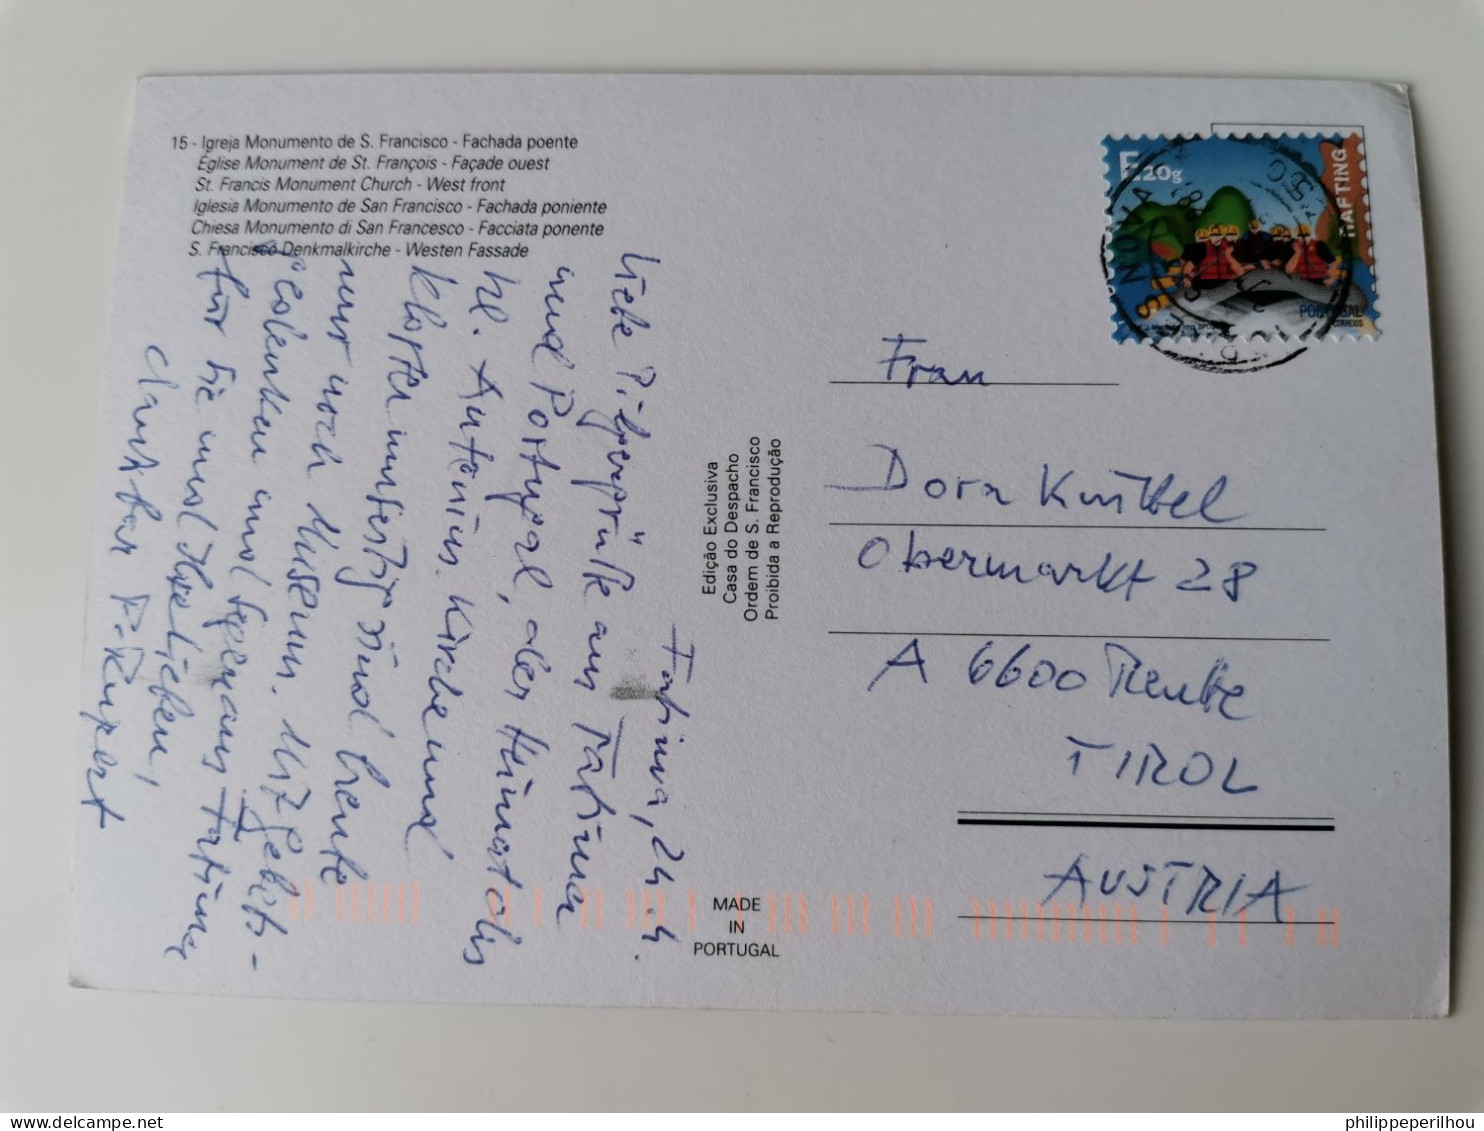 15 - Igreja Monumento de S. Francisco - Fachada poente
Église Monument de St. François - Façade ouest
St. Francis Monument Church - West front
Iglesia Monumento de San Francisco - Fachada poniente
Chiesa Monumento di San Francesco - Facciata ponente
S. Francisco Denkmalkirche - Westen Fassade
Fatima, 24.
Liebe Pilgergrüße aus Fatima
und Portugal, der Heimat des
hl. Antonius. Kirche und
Kloster sind heute
nur noch Museum. Gebets-
gedenken und Segen aus Fatima
für Sie und Ihre Lieben,
dankbar P. Rupert
Edição Exclusiva
Casa do Despacho
Ordem de S. Francisco
Proibida a Reprodução
MADE
IN
PORTUGAL
E20g
RAFTING
PORTUGAL
CORREIOS
Frau
Dora Knittel
Obermarkt 28
A 6600 Reutte
TIROL
AUSTRIA
philippeperilhou